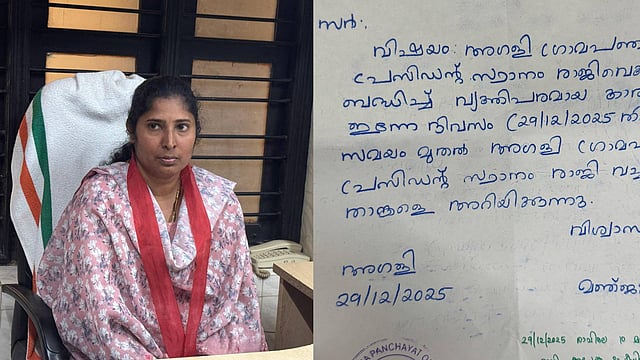 സർ.
വിഷയം: അഗളി ഗ്രാമപഞ
പ്രസിഡന്റ് സ്ഥാനം രാജിവെക
ബന്ധിച്ച് വ്യക്തിപരമായ കാര
ഇന്നേ ദിവസം (29/12/2025 തി
സമയം മുതൽ അഗളി ഗ്രാമപ
പ്രസിഡന്റ് സ്ഥാനം രാജി വച്ച
താങ്കളെ അറിയിക്കുന്നു.
വിശ്വാസ
അഗളി
29/12/2025
മഞ്ജു
29/12/2025 രാവിലെ 10 മ
A PANCHAYAT O